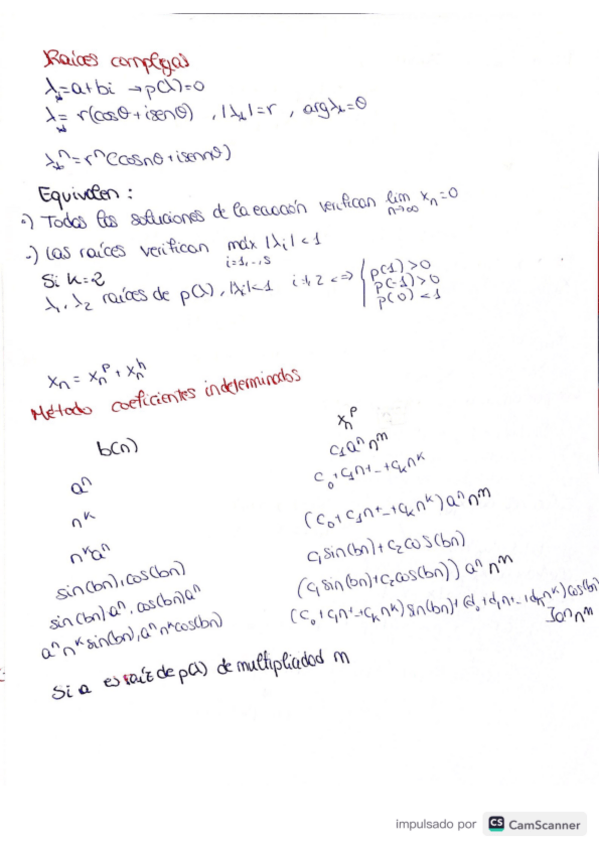 Raíces complejas
λₖ=a+bi → p(λ)=0
λₖ= r(cosθ+isenθ) , |λₖ|=r , argλₖ=θ
λₖⁿ=rⁿ(cosnθ+isennθ)
Equivalen:
·) Todas las soluciones de la ecuación verifican lim xₙ=0
n→∞
·) Las raíces verifican máx |λᵢ|<1
i=1,..,s
Si k=2
λ₁,λ₂ raíces de p(λ), |λᵢ|<1 i=1,2 <=> { p(1)>0
p(-1)>0
p(0)<1
xₙ = xₙᵖ + xₙʰ
Método coeficientes indeterminados
b(n) xₙᵖ
aⁿ c₁aⁿnᵐ
nᵏ c₀+c₁n+..+cₖnᵏ
nᵏaⁿ (c₀+c₁n+..+cₖnᵏ)aⁿnᵐ
sin(bn),cos(bn) c₁sin(bn)+c₂cos(bn)
sin(bn)aⁿ, cos(bn)aⁿ (c₁sin(bn)+c₂cos(bn))aⁿnᵐ
aⁿnᵏsin(bn),aⁿnᵏcos(bn) (c₀+c₁n+..+cₖnᵏ)sin(bn)+(d₀+d₁n+..+dₖnᵏ)cos(bn)
]aⁿnᵐ
Si a es raíz de p(λ) de multiplicidad m
impulsado por CS CamScanner